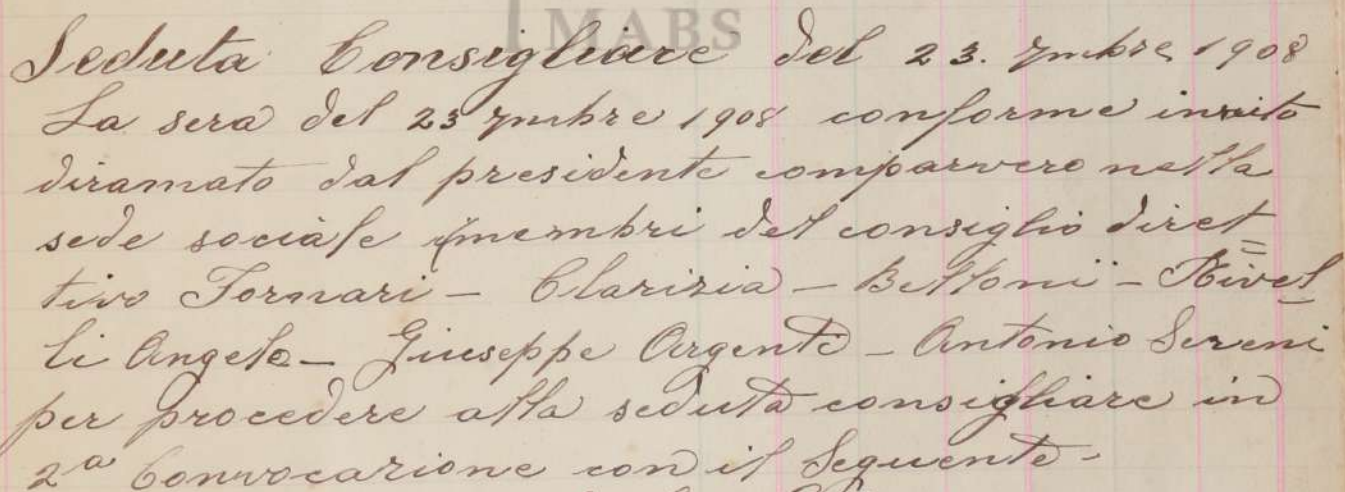 MABS
Seduta Consigliare del 23. 9mbre 1908
La sera del 23 9mbre 1908 conforme invito
diramato dal presidente comparvero nella
sede sociale i membri del consiglio diret=
tivo Fornari - Clarizia - Bettoni - Rivel=
li Angelo - Giuseppe Argenti - Antonio Sereni
per procedere alla seduta consigliare in
2ª Convocazione con il Seguente-